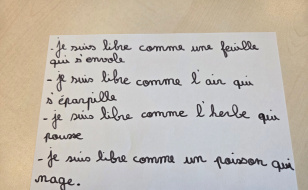 - je suis libre comme une feuille
qui s'envole
- je suis libre comme l'air qui
s'éparpille
- je suis libre comme l'herbe qui
pousse
- je suis libre comme un poisson qui
nage.